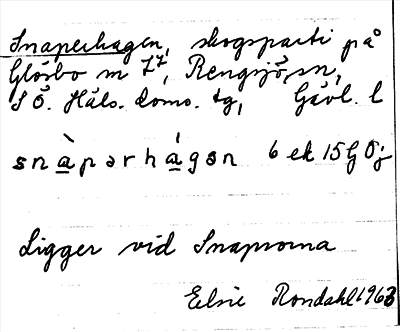 Snaperhagen, skogsparti på
Glösbo m 7⁷, Rengsjö sn,
S Ö. Häls. doms. tg, Gävl. l
snàpərhágən 6 ek 15G Öj
Ligger vid Snaprorna
Elsie Rondahl 1963